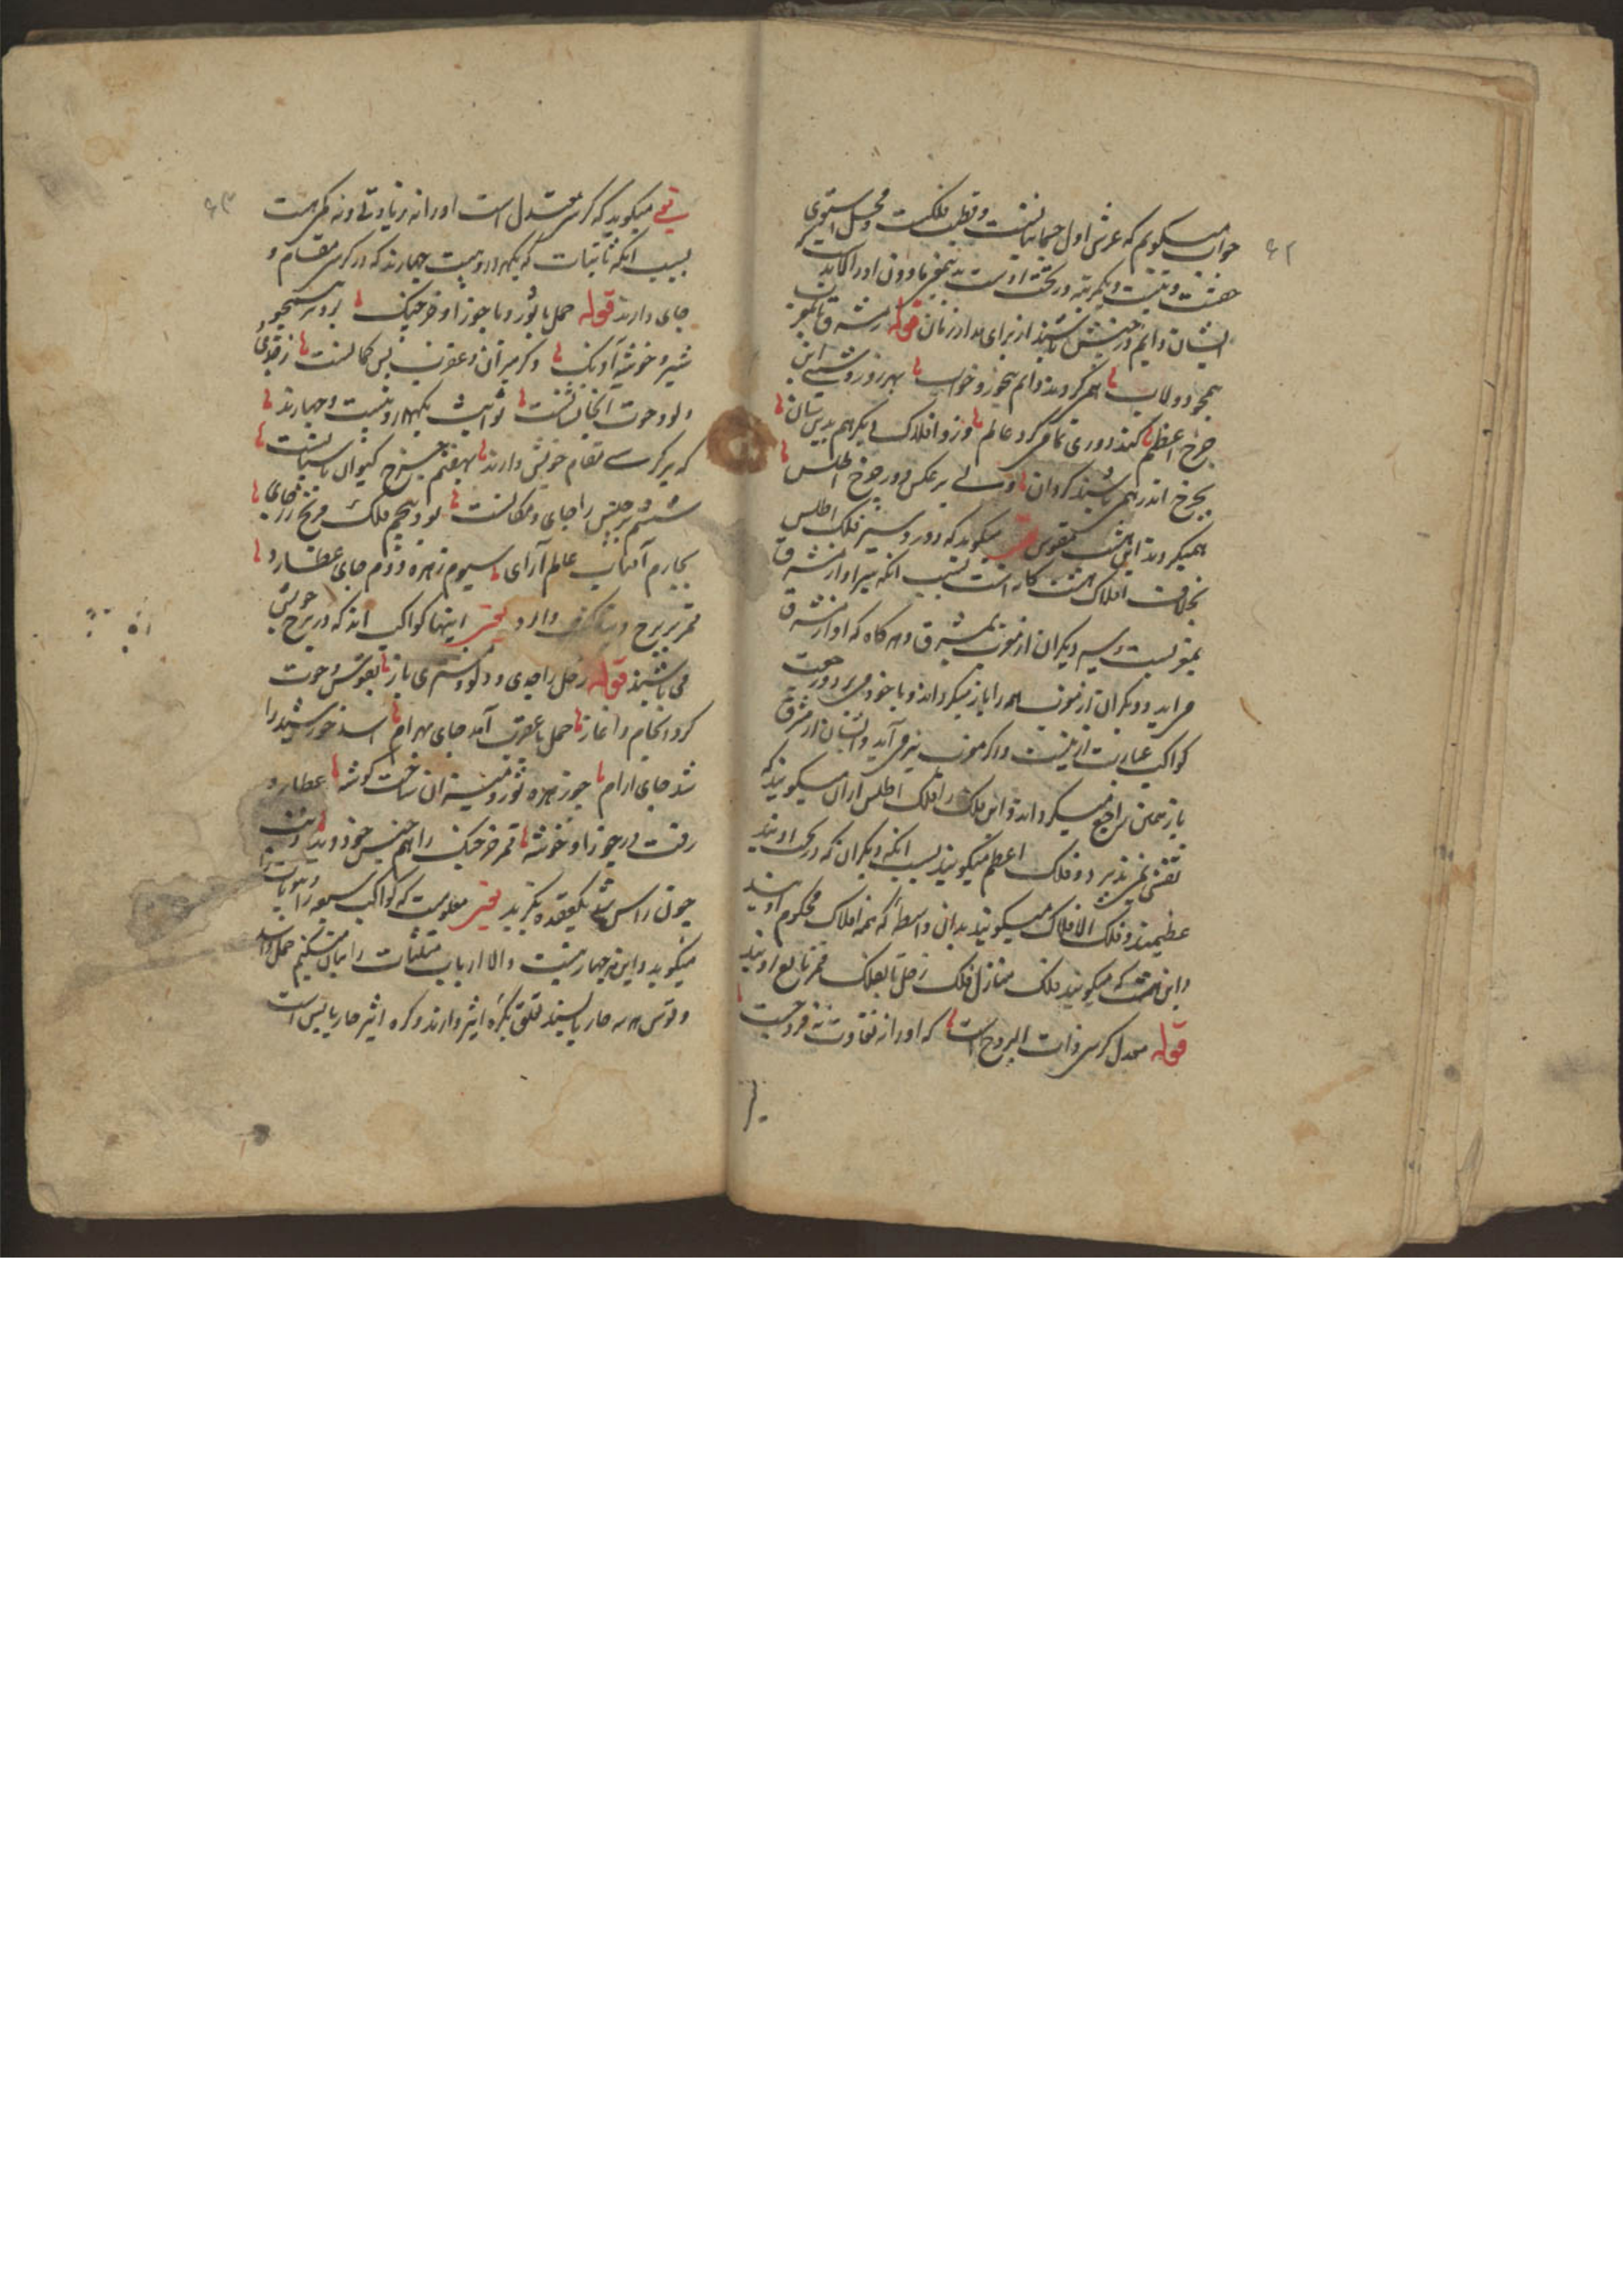 ۶۲
جواب میگویم که عرش اول جسمانیاتست و قطب فلکست و محل استوی
هفت و بیست و یکمرتبه در تحت اوست بدینجمع مادون او را کالبد
ایشان دایم در جنبش باشند از برای مدار زمان قوله ز مشرق تا بمغرب
همچو دولاب همی گردند دایم بیخور و خواب بهر روز و شبی این
چرخ اعظم کند دوری تمامی گرد عالم وزو افلاک دیگر هم بدینسان
بچرخ اندر همی باشند گردان ولی برعکس دور چرخ اطلس
همیگردند این هشت مقوس میگوید که دور و سیر فلک اطلس
بخلاف افلاک هشت‌گانه است بسبب انکه سیر او از مشرق
بمغربست و سیر دیگران از مغرب بمشرق و هر گاه که او از مشرق
می‌آید و دیگران از مغرب همه را باز میگرداند و با خود میبرد و رجعت
کواکب عبارت ازینست و اگر مغرب نیز می‌آید و ایشان از مشرق
باز همین راجع میگرداند و این فلک را فلک اطلس ازان میگویند که
نقش نمی‌پذیرد و فلک اعظم میگویند بسبب انکه دیگران که در تحت اویند
عظیمند و فلک الافلاک میگویند بدان واسطه که همه افلاک محکوم اویند
و این هشت که میگویند فلک منازل فلک زحل تا بفلک قمر تابع اویند
قوله معدل کرسی ذات البروج است که او را نه تفاوت نه فروجست
۶۳
یعنی میگوید که کرسی معتدل است او را نه زیادتی و نه کمی هست
بسبب انکه ثابتات که یکهزار و بیست و چهارند که در کرسی مقام و
جای دارند قوله حمل با ثور و با جوزا و خرچنگ برو بر همچو
شیر و خوشه آونگ دگر میزان و عقرب پس کمانست ز جدی
و دلو و حوت آنجا نشانست ثوابت یکهزار و بیست و چهارند
که بر کرسی مقام خویش دارند بهفتم چرخ کیوان پاسبانست
ششم برجیس را جای و مکانست بود پنجم فلک مریخ را جای
بچارم آفتاب عالم آرای سیوم زهره دوم جای عطارد
قمر بر چرخ دنیا گشت وارد یعنی اینها کواکب اند که در برج خویش
می باشند قوله زحل را جدی و دلو و مشتری باز بقوس و حوت
کرد انجام و آغاز حمل با عقرب آمد جای بهرام اسد خورشید را
شد جای ارام چو زهره ثور و میزان ساخت گوشه عطارد
رفت در جوزا و خوشه قمر خرچنگ را همجنس خود دید ذنب
چون راس شد یکعقده بگزید یعنی معلومست که کواکب سبعه را بیوتات
میگوید و این نیز چهار هست و الا ارباب مثلثات را بیان میکنیم حمل و اسد
و قوس هر سه حار یابسند تعلق بکره اثیر دارند و کره اثیر حار یابس است